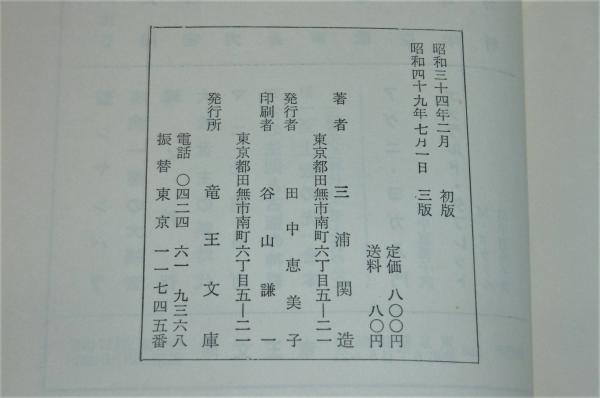 昭和三十四年二月 初版
昭和四十九年七月一日 三版
定価 八〇〇円
送料 八〇円
著者 三浦関造
東京都田無市南町六丁目五―二一
発行者 田中恵美子
印刷者 谷山謙一
東京都田無市南町六丁目五―二一
発行所 竜王文庫
電話 〇四二四 六一 九三六八
振替東京 一一七四五番